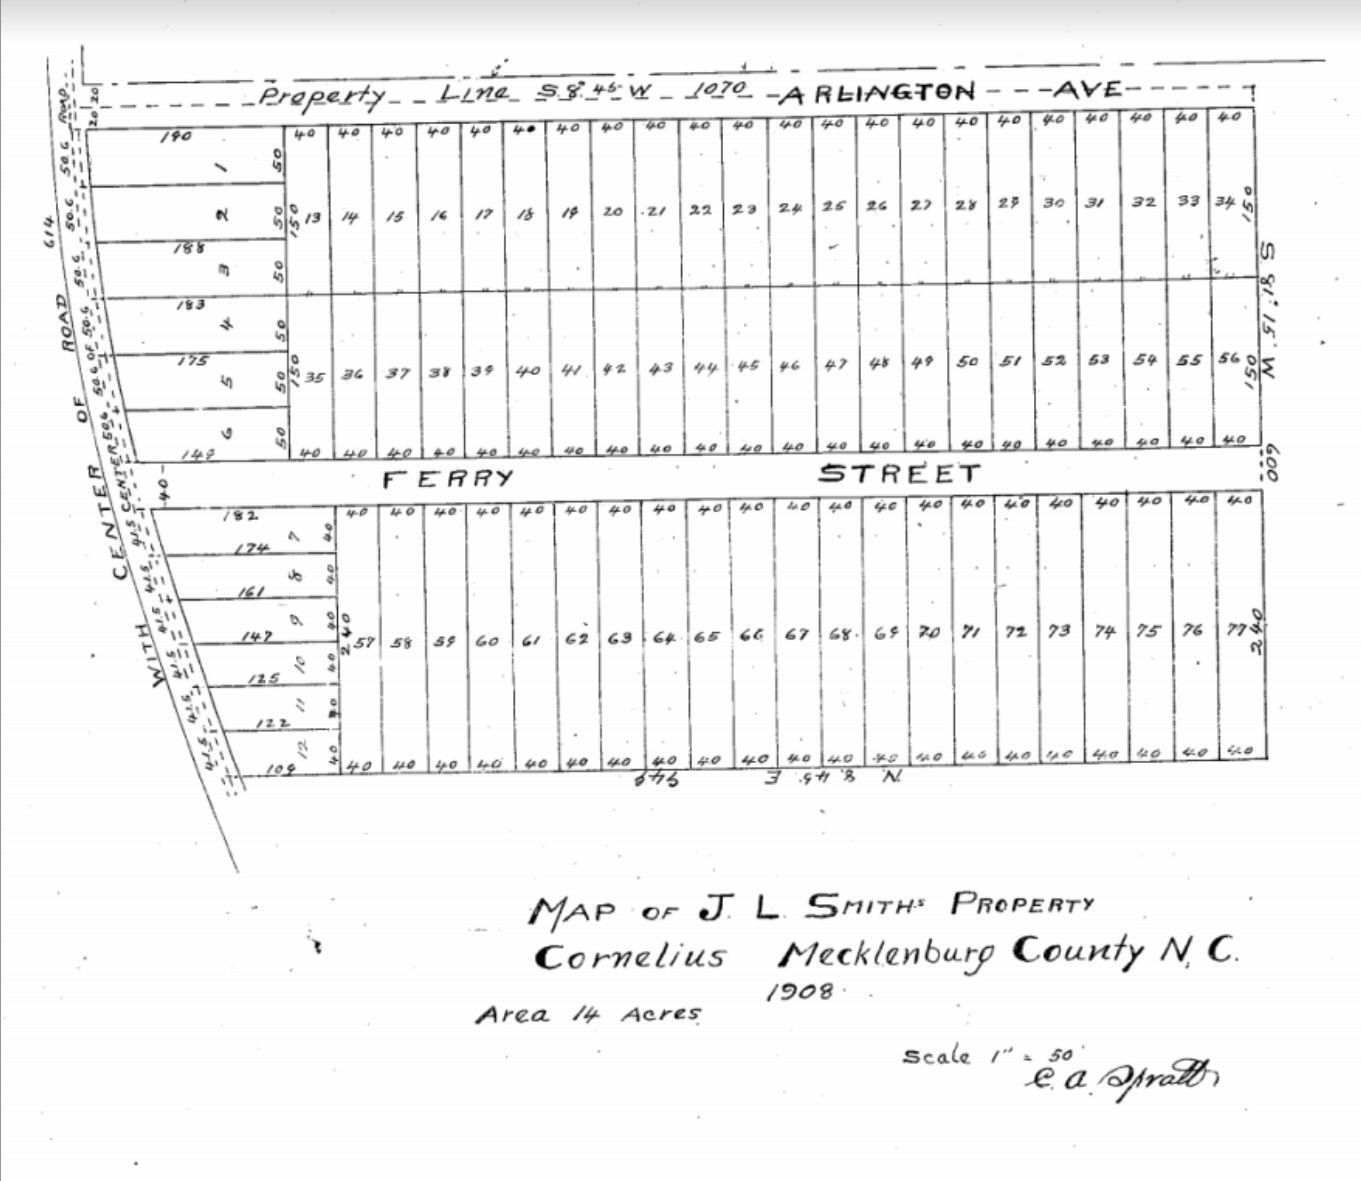 Property Line S 8° 45' W 1070 ARLINGTON AVE
20 20
190 40 40 40 40 40 40 40 40 40 40 40 40 40 40 40 40 40 40 40 40 40 40
1 50
2 50 150 13 14 15 16 17 18 19 20 21 22 23 24 25 26 27 28 29 30 31 32 33 34 150
188
3 50
183
4 50
175
5 50 150 35 36 37 38 39 40 41 42 43 44 45 46 47 48 49 50 51 52 53 54 55 56 150
6 50
149 40 40 40 40 40 40 40 40 40 40 40 40 40 40 40 40 40 40 40 40 40 40
S 81° 15' W
600
614
WITH CENTER OF ROAD
50.6 50.6 50.6 50.6 50.6 50.6
CENTER OF ROAD
40
FERRY STREET
182 40 40 40 40 40 40 40 40 40 40 40 40 40 40 40 40 40 40 40 40 40
7 40
174
8 40
161
9 40
147 240 57 58 59 60 61 62 63 64 65 66 67 68 69 70 71 72 73 74 75 76 77 240
10 40
125
11 40
122
12 40
109 40 40 40 40 40 40 40 40 40 40 40 40 40 40 40 40 40 40 40 40 40
41.5 41.5 41.5 41.5 41.5 41.5
N. 8. 45. E 949
MAP OF J. L. SMITH'S PROPERTY
Cornelius Mecklenburg County N, C.
1908
Area 14 Acres
Scale 1" = 50'
C. A. Spratt